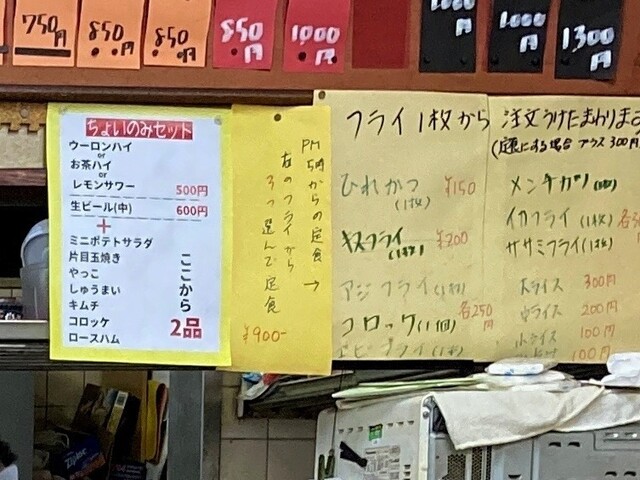 750円
850円
850円
850円
1,000円
1,000円
1,300円
ちょいのみセット
ウーロンハイ
or
お茶ハイ
or
レモンサワー 500円
生ビール(中) 600円
+
ミニポテトサラダ
片目玉焼き
やっこ
しゅうまい
キムチ
コロッケ
ロースハム
ここから
2品
PM5時からの定食→
右のフライから
3つ選んで定食
¥900-
フライ1枚から 注文うけたまわりま
(定食にする場合プラス300円
ひれかつ(1枚) ¥150
キスフライ(1枚) ¥200
アジフライ(1枚)
コロッケ(1個) 各250円
エビフライ(1本)
メンチカツ
イカフライ(1枚)
ササミフライ(1枚)
大ライス 300円
中ライス 200円
小ライス 100円
100円